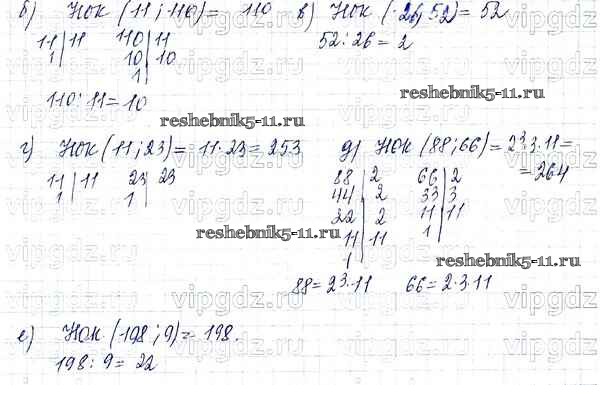 б) НОК (11; 110) = 110
11 | 11    110 | 11
1 |    10 | 10
1
110 : 11 = 10
в) НОК (26; 52) = 52
52 : 26 = 2
reshebnik5-11.ru
reshebnik5-11.ru
г) НОК (11; 23) = 11·23 = 253
11 | 11    23 | 23
1 |    1 |
д) НОК (88; 66) = 2³·3·11 =
= 264
88 | 2    66 | 2
44 | 2    33 | 3
22 | 2    11 | 11
11 | 11    1 |
1
88 = 2³·11    66 = 2·3·11
reshebnik5-11.ru
reshebnik5-11.ru
е) НОК (198; 9) = 198.
198 : 9 = 22
vipgdz.ru